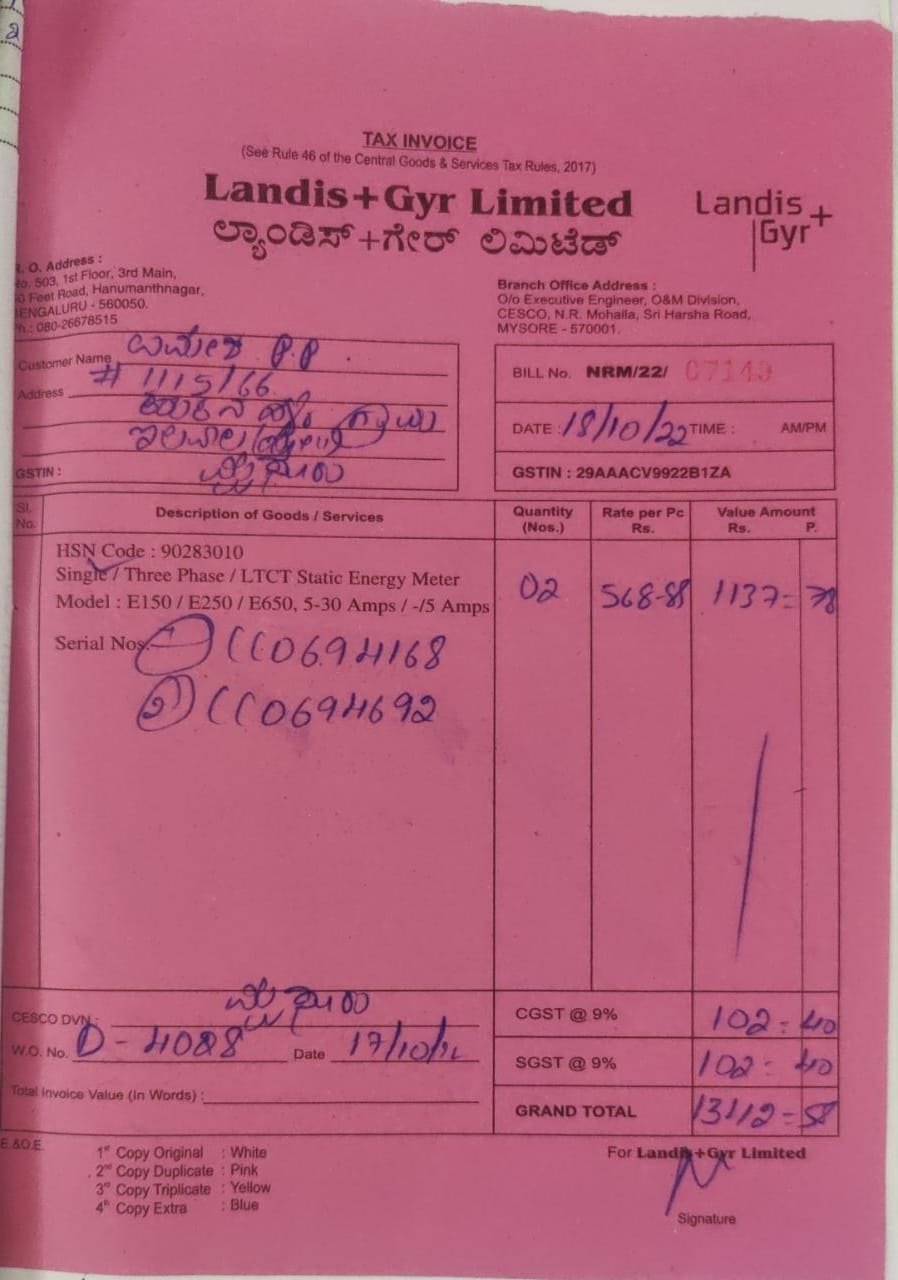 TAX INVOICE
(See Rule 46 of the Central Goods & Services Tax Rules, 2017)
Landis+Gyr Limited
ಲ್ಯಾಂಡಿಸ್+ಗೇರ್ ಲಿಮಿಟೆಡ್
Landis+
Gyr
R. O. Address :
No. 503, 1st Floor, 3rd Main,
Feet Road, Hanumanthnagar,
BENGALURU - 560050.
Ph.: 080-26678515
Branch Office Address :
O/o Executive Engineer, O&M Division,
CESCO, N.R. Mohalla, Sri Harsha Road,
MYSORE - 570001.
Customer Name P.P.
Address # 1115/66
ಗ್ರಾಮ
ಇಲವಾಲ
GSTIN : ಮೈಸೂರು
BILL No. NRM/22/ 07149
DATE : 18/10/22 TIME : AM/PM
GSTIN : 29AAACV9922B1ZA
Sl. No. Description of Goods / Services Quantity (Nos.) Rate per Pc Rs. Value Amount Rs. P.
HSN Code : 90283010
Single / Three Phase / LTCT Static Energy Meter
Model : E150 / E250 / E650, 5-30 Amps / -/5 Amps 02 568-88 1137= 78
Serial Nos. 1) CC0694168
2) CC0694692
CESCO DVN : ಮೈಸೂರು
W.O. No. D - 4088 Date 17/10/22
Total Invoice Value (In Words) :
CGST @ 9% 102= 40
SGST @ 9% 102= 40
GRAND TOTAL 1342=58
E.&O.E.
1st Copy Original : White
2nd Copy Duplicate : Pink
3rd Copy Triplicate : Yellow
4th Copy Extra : Blue
For Landis+Gyr Limited
Signature